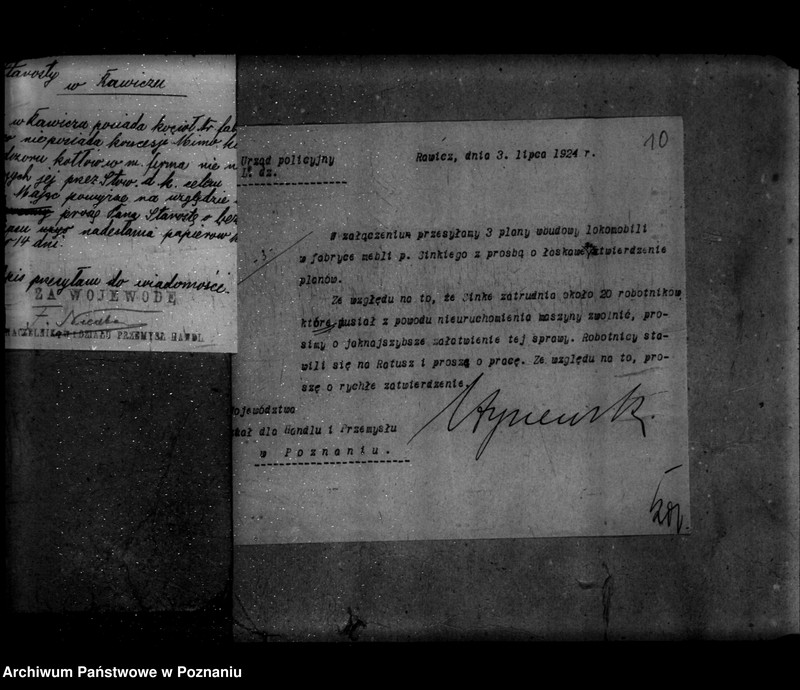 Starosty
w Rawiczu
w Rawiczu posiada kocioł
nie posiada koncesji Mimo
dozoru kotłów w m. firma nie
jej przez Stow. d. k.
Mając powyższe na względzie
proszę Pana Starostę o bez
nadesłania papierów
14 dni.
przesyłam do wiadomości.
ZA WOJEWODĘ
NACZELNIK WYDZIAŁU PRZEMYSŁ HANDL.
10
Urząd policyjny
L. dz.
Rawicz, dnia 3. lipca 1924 r.
-3-
W załączeniu przesyłamy 3 plany wbudowy lokomobili
w fabryce mebli p. Sinkiego z prosbą o łaskawe zatwierdzenie
planów.
Ze względu na to, że Sinke zatrudnia około 20 robotników
które musiał z powodu nieuruchomienia maszyny zwolnić, pro-
simy o jaknajszybsze załatwienie tej sprawy. Robotnicy sta-
wili się na Ratusz i proszą o pracę. Ze względu na to, pro-
szę o rychłe zatwierdzenie.
Województwo
dla Handlu i Przemysłu
w Poznaniu.
Archiwum Państwowe w Poznaniu